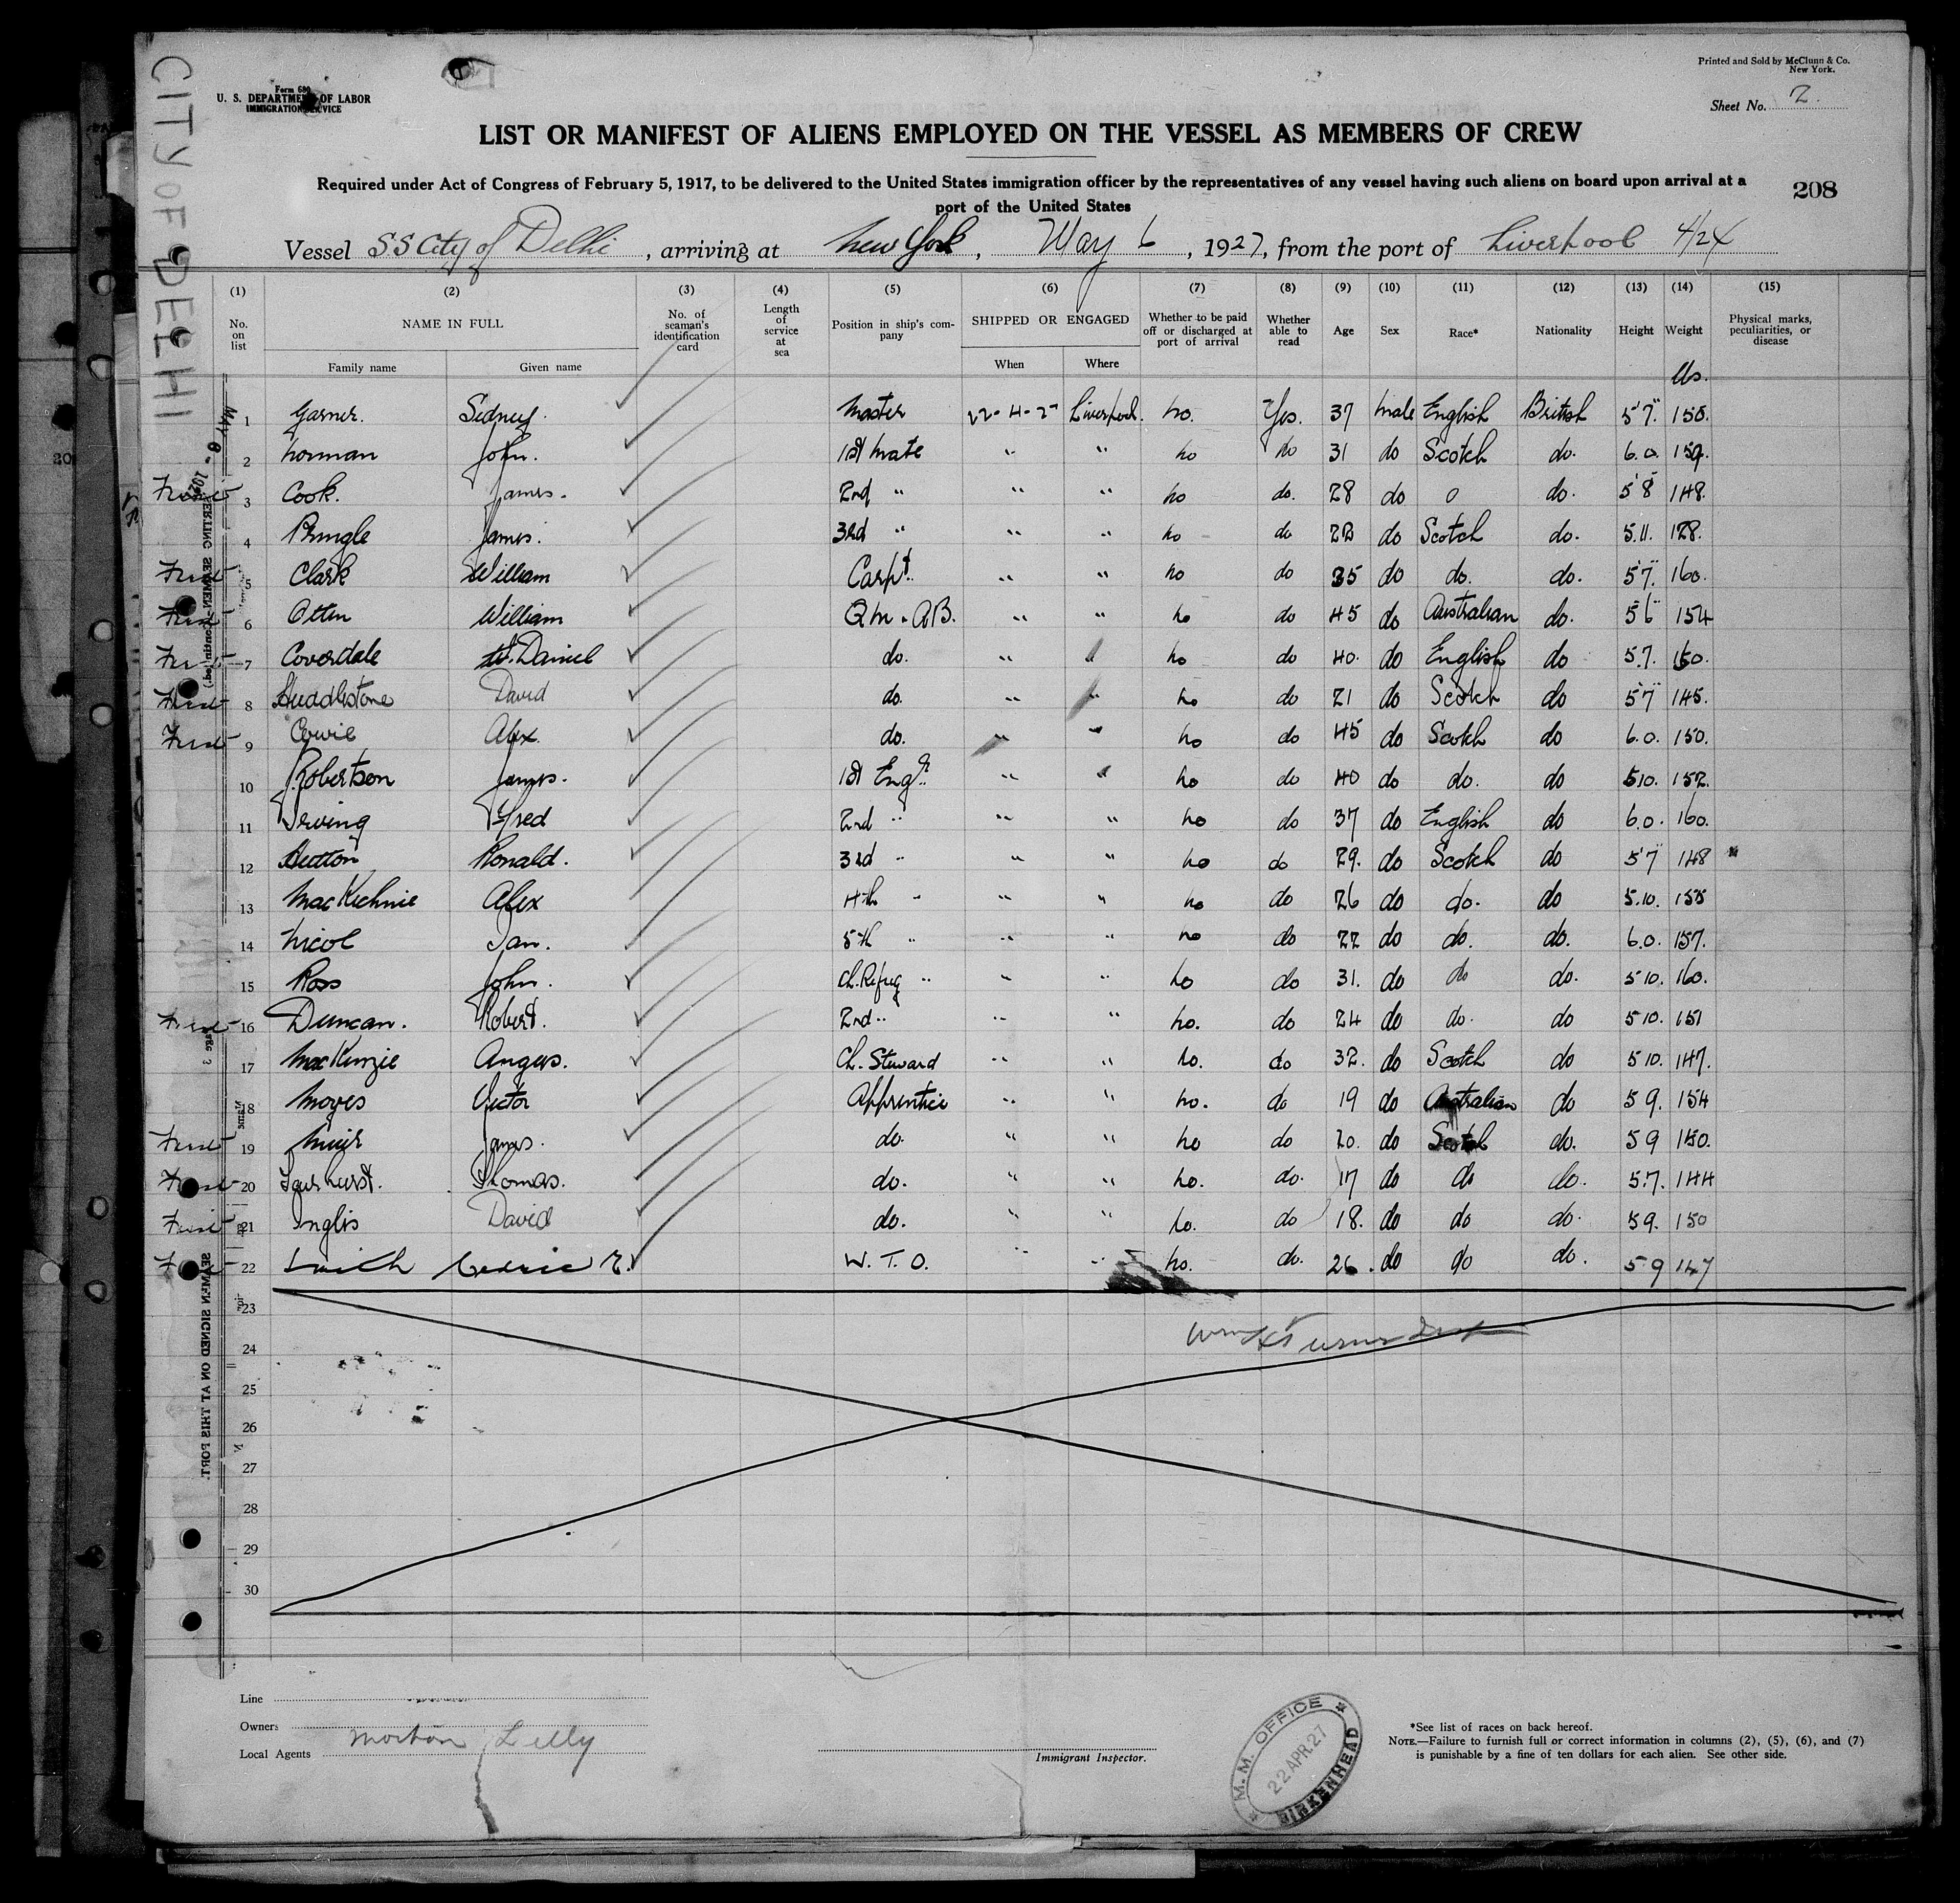 CITY OF DELHI
Form 680
U. S. DEPARTMENT OF LABOR
IMMIGRATION SERVICE
Printed and Sold by McClunn & Co.
New York.
Sheet No. 2
LIST OR MANIFEST OF ALIENS EMPLOYED ON THE VESSEL AS MEMBERS OF CREW
Required under Act of Congress of February 5, 1917, to be delivered to the United States immigration officer by the representatives of any vessel having such aliens on board upon arrival at a
port of the United States
208
Vessel SS City of Delhi, arriving at New York, May 6, 1927, from the port of Liverpool 4/24
(1) (2) (3) (4) (5) (6) (7) (8) (9) (10) (11) (12) (13) (14) (15)
No. on list NAME IN FULL No. of seaman's identification card Length of service at sea Position in ship's company SHIPPED OR ENGAGED Whether to be paid off or discharged at port of arrival Whether able to read Age Sex Race* Nationality Height Weight Physical marks, peculiarities, or disease
Family name Given name When Where
lbs.
1 Garner. Sidney. Master 22-4-27 Liverpool. no. Yes. 37 male English British 5'7" 158.
2 Norman John. 1st Mate " " no do 31 do Scotch do. 6.0. 159.
3 Cook. James. 2nd " " " no do. 28 do do. 5'8" 148.
4 Pringle James. 3rd " " " no do 22 do Scotch do. 5.11. 128.
5 Clark William Carpt. " " no do 35 do do. do. 5'7". 160.
6 William Qm. AB. " " no do 45 do Australian do. 5'6" 154
7 Coverdale Daniel do. " " no do 40. do English do 5.7. 150.
8 Huddlestone David do. " " no do 21 do Scotch do 5'7" 145.
9 Cowie Alex. do. " " no do 45 do Scotch do 6.0. 150.
10 Robertson James. 1st Engr. " " no do 40 do do. do 5 10. 152.
11 Irving Fred 2nd " " " no do 37 do English do 6.0. 160.
12 Hutton Ronald. 3rd " " " no do 29. do Scotch do 5'7" 148
13 MacKichnie Alex 4th " " " no do 26 do do. do 5.10. 155
14 Nicol Ian. 5th " " " no do 22 do do. do. 6.0. 157.
15 Ross John. Ch. Refrig " " " no do 31. do do do. 5 10. 160.
16 Duncan. Robert. 2nd " " " no. do 24 do do. do 5 10. 151
17 MacKenzie Angus. Ch. Steward " " no. do 32. do Scotch do 5 10. 147.
18 Moyes Victor Apprentice " " no. do 19 do Australian do 5 9. 154
19 Muir James. do. " " no do 20. do Scotch do. 5 9 150.
20 Fairhurst. Thomas. do. " " no. do. 17 do do do. 5.7. 144
21 Inglis David do. " " no. do 18. do do do. 5 9. 150
22 Cedric W. T. O. " " no. do. 26. do do do. 5 9 147
23
24
25
26
27
28
29
30
Line
Owners
Local Agents Morton Lilly
Immigrant Inspector.
M. M. OFFICE
22 APR. 27
BIRKENHEAD
*See list of races on back hereof.
NOTE.—Failure to furnish full or correct information in columns (2), (5), (6), and (7)
is punishable by a fine of ten dollars for each alien. See other side.
SEAMEN SIGNED ON AT THIS PORT.